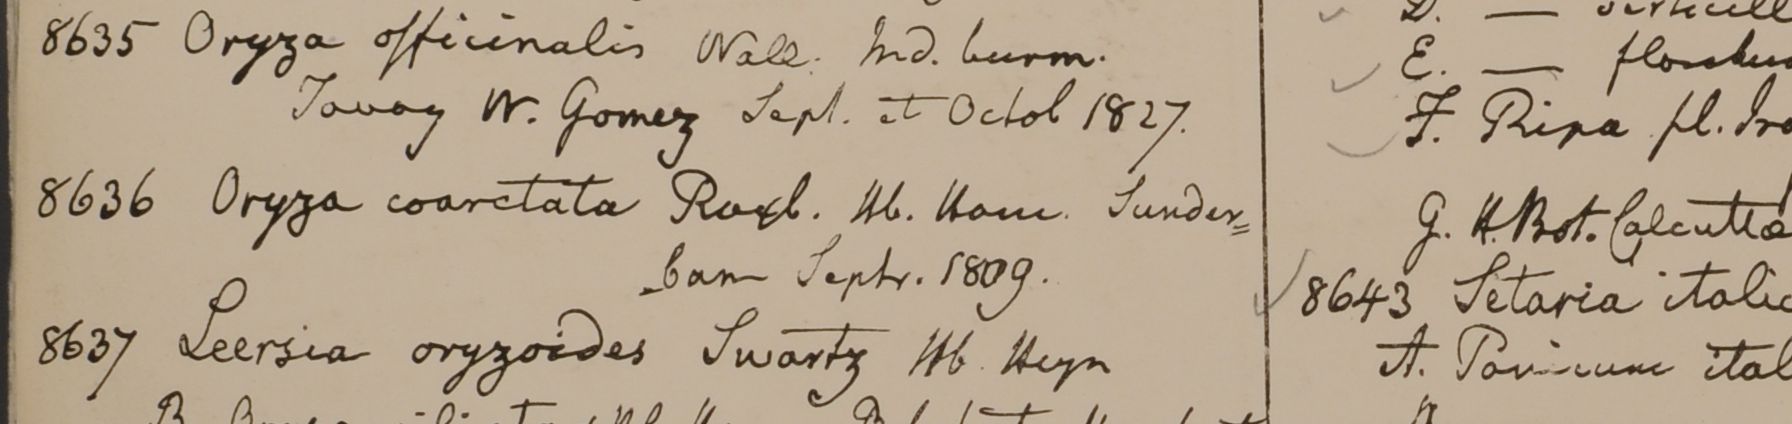 8635 Oryza officinalis Wall. Ind. burm.
Tavoy W. Gomez Sept. et Octob 1827.
8636 Oryza coarctata Roxb. Hb. Ham. Sunder=
bam Septr. 1809.
8637 Leersia oryzoides Swartz Hb. Heyn
D. —
E. —
F. Ripa fl.
G. H. Bot. Calcutta
8643 Setaria italic
A. Panicum ital